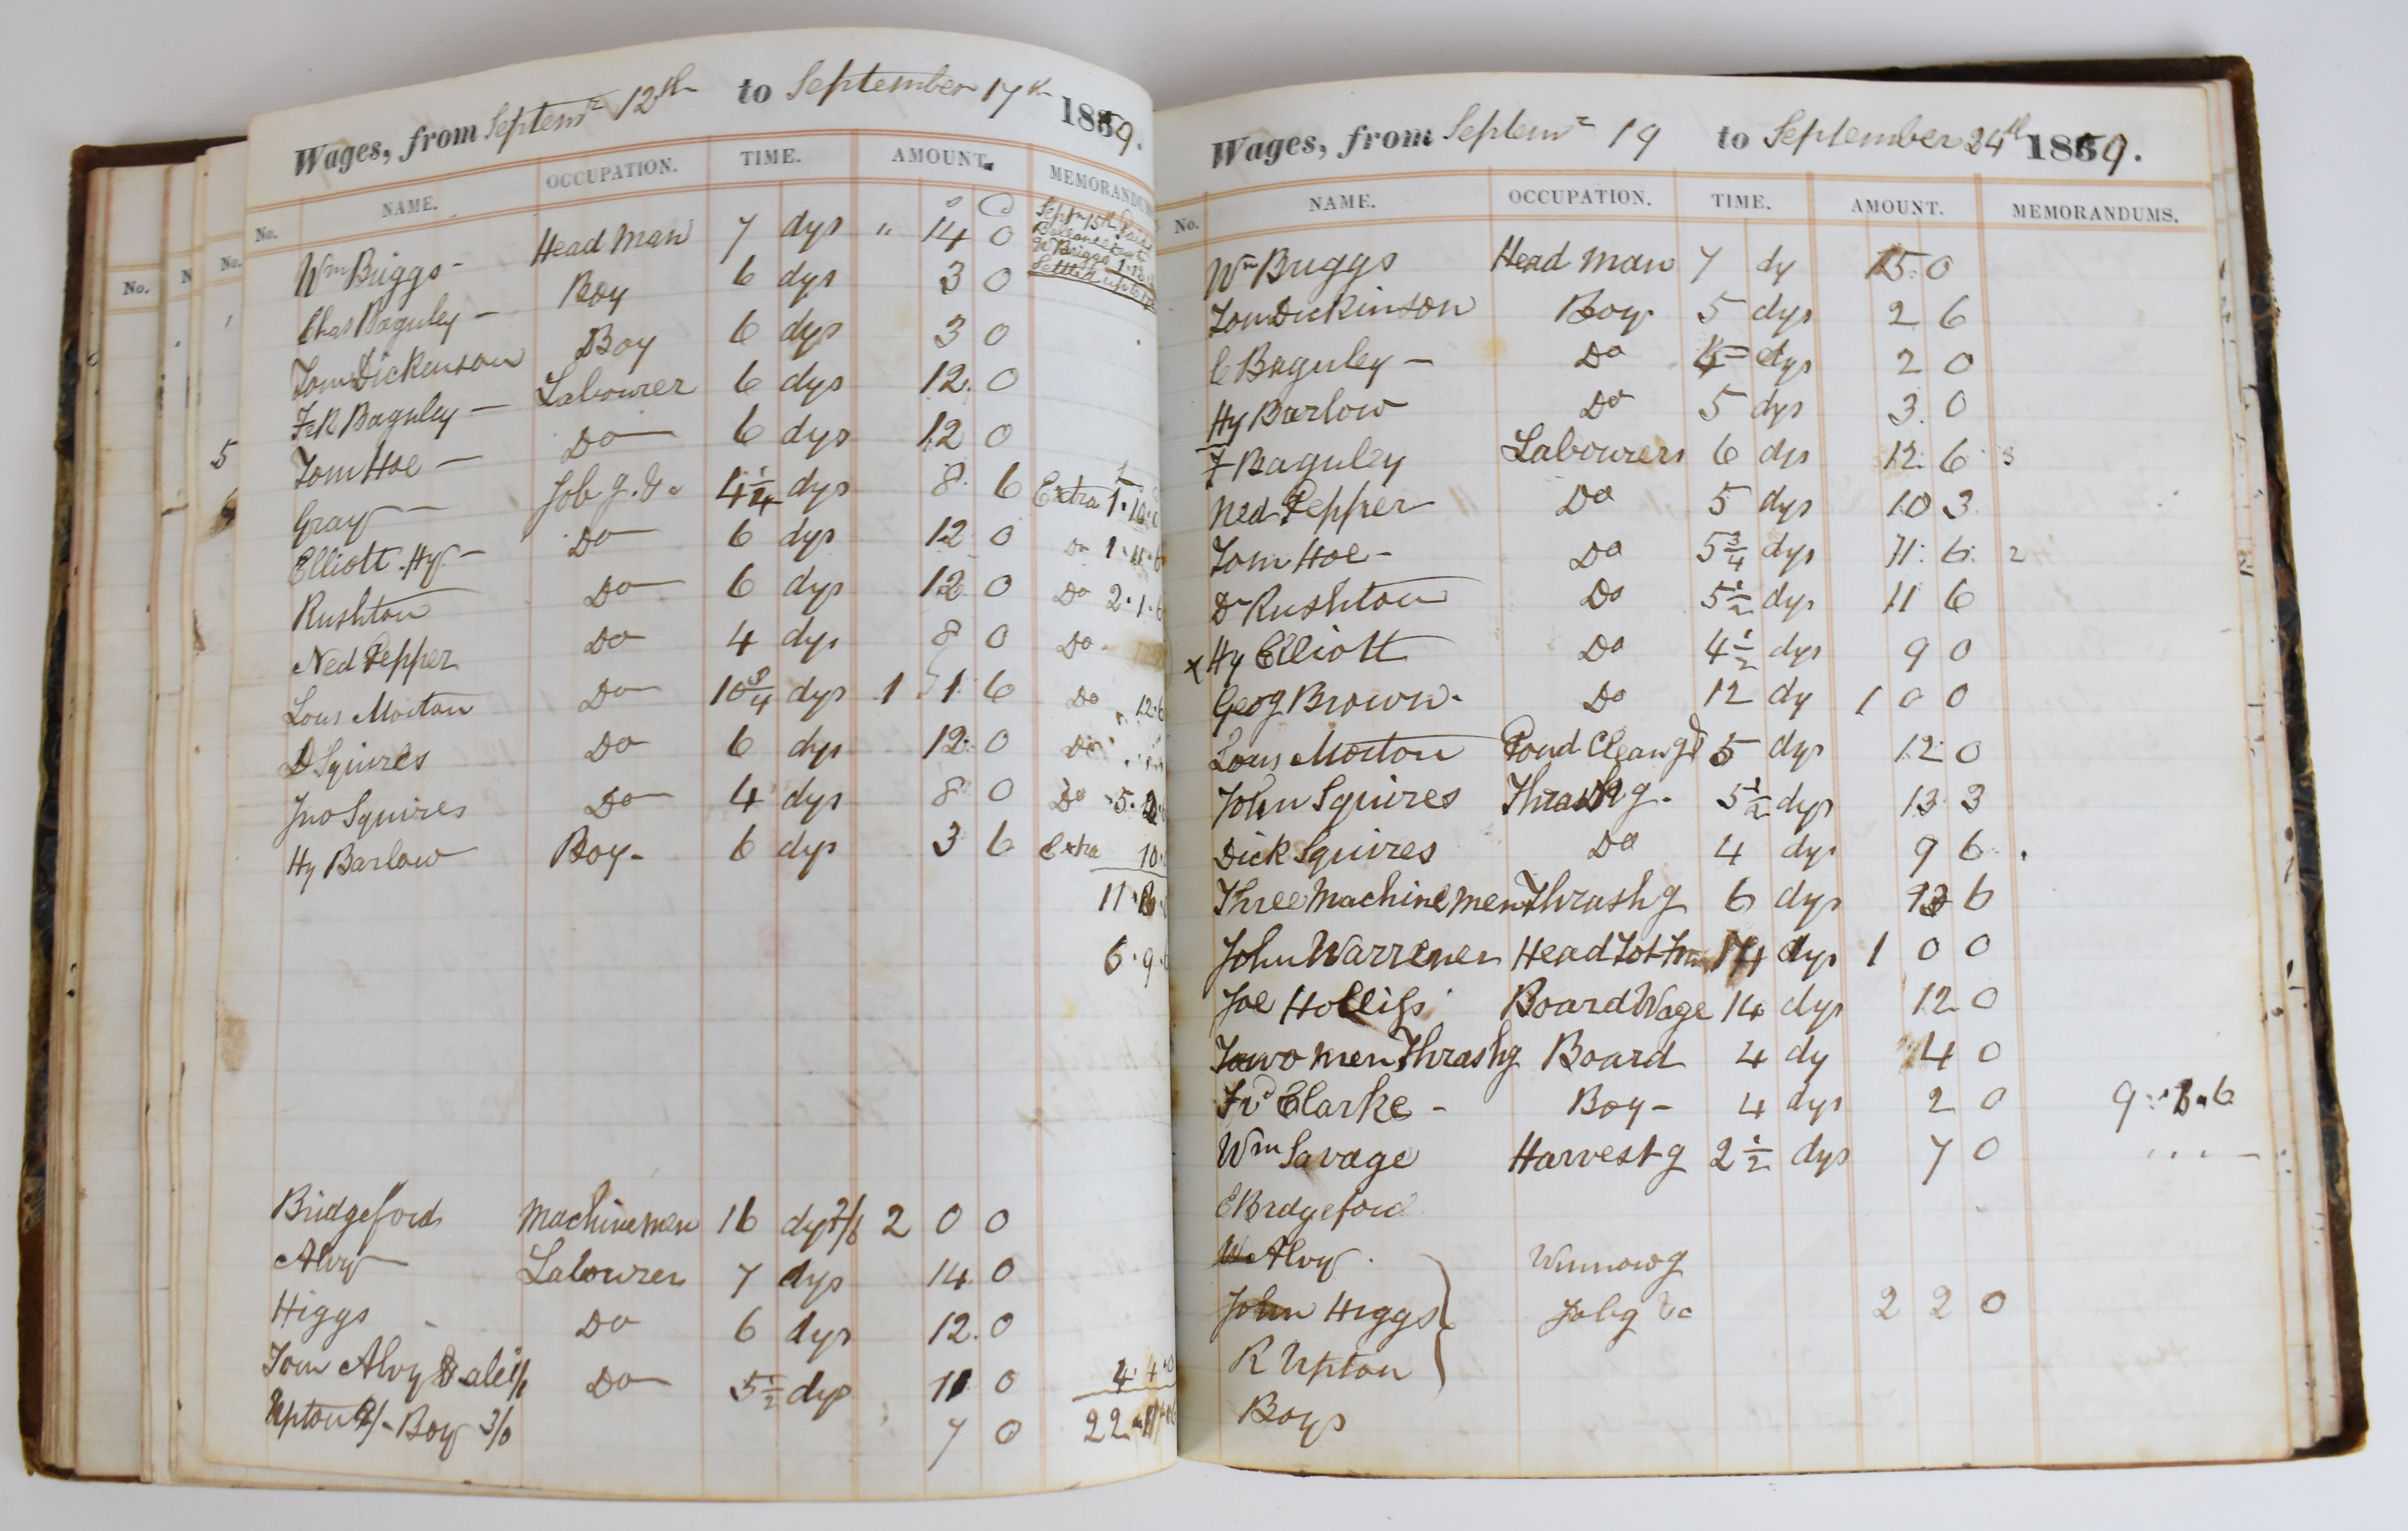 Wages, from Septemr 12th to September 17th 1859.
No. NAME. OCCUPATION. TIME. AMOUNT. MEMORANDUMS
Wm Briggs - Head Man 7 dys " 14 0
Chas Baguley - Boy 6 dys 3 0
Tom Dickenson Boy 6 dys 3 0
FR Baguley - Labourer 6 dys 12. 0
Tom Hoe - Do 6 dys 12 0
Gray - Job g. &c 4 1/4 dys 8. 6 Extra 1.10.
Elliott. Hy - Do 6 dys 12 0 Do 1.
Rushton Do 6 dys 12 0 Do 2.1.
Ned Pepper Do 4 dys 8 0 Do
Lous Morton Do 10 3/4 dys 1 1 6 Do 12.6
D Squires Do 6 dys 12. 0 Do
Jno Squires Do 4 dys 8 0 Do 5.
Hy Barlow Boy - 6 dys 3 6 Extra 10.
11.
6.9.
Bridgeford Machinemen 16 dys 2/6 2 0 0
Alvy Labourer 7 dys 14. 0
Higgs Do 6 dys 12. 0
Tom Alvy & ale 1/ Do 5 1/2 dys 11 0 4.4.0
Upton 4/- Boy 3/0 7 0 22
Wages, from Septemr 19 to September 24th 1859.
No. NAME. OCCUPATION. TIME. AMOUNT. MEMORANDUMS.
Wm Briggs Head Man 7 dy 15. 0
Tom Dickinson Boy. 5 dys 2 6
C Baguley - Do 4 dys 2 0
Hy Barlow Do 5 dys 3. 0
F Baguley Labourers 6 dys 12. 6 3
Ned Pepper Do 5 dys 10 3
Tom Hoe - Do 5 3/4 dys 11. 6. 2
Dr Rushton Do 5 1/2 dys 11 6
x Hy Elliott Do 4 1/2 dys 9 0
Geog Brown. Do 12 dy 1 0 0
Lous Morton Pond Cleang 5 dys 12. 0
John Squires Thrashg. 5 1/2 dys 13 3
Dick Squires Do 4 dys 9 6
Three Machine men Thrashg 6 dys 6
John Warrener Head 14 dys 1 0 0
Joe Holliss Board Wage 14 dys 12 0
Towo men Thrashg Board 4 dy 4 0
Frd Clarke - Boy - 4 dys 2 0 9.8.6
Wm Savage Harvestg 2 1/2 dys 7 0
E Brdgeford
W Alvy. Winnowg
John Higgs Jobg &c 2 2 0
R Upton
Boys